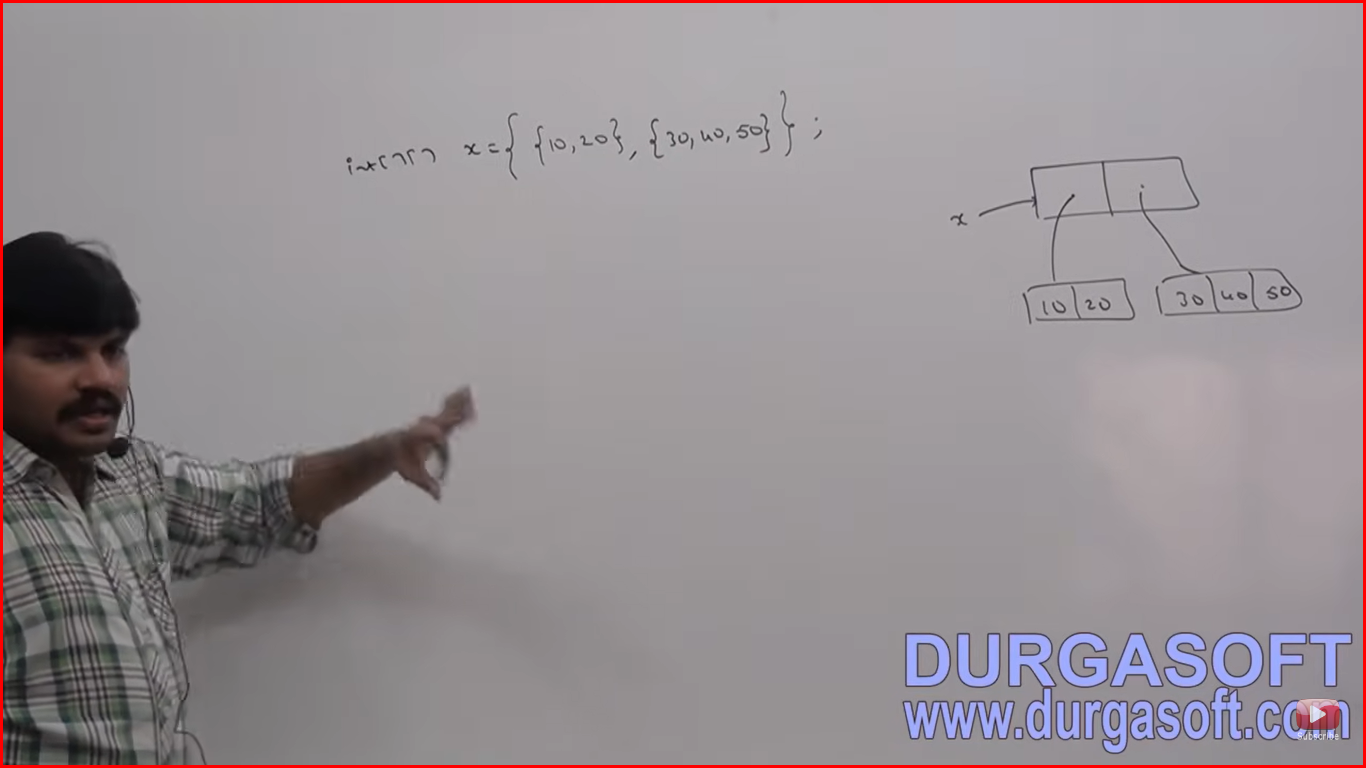 int[][] x = { {10,20}, {30,40,50} };
x
10 20 30 40 50
DURGASOFT
www.durgasoft.com
Subscribe